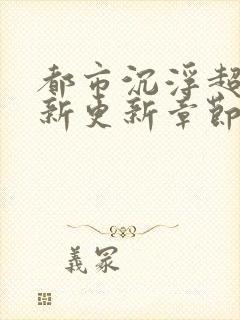 都市沉浮超
新更新章節
義冢